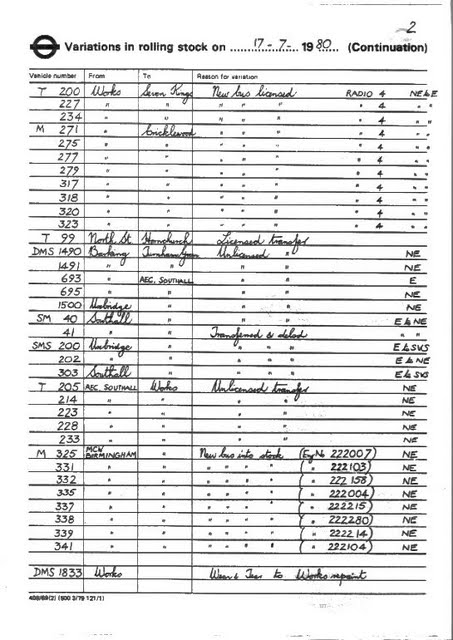 2
Variations in rolling stock on ...... 17 - 7 - 1980 (Continuation)
Vehicle number From To Reason for variation
T 200 Works Seven Kings New bus licensed RADIO 4 NE & E
227 " " " " " " 4 " "
234 " " " " " " 4 " "
M 271 " Cricklewood " " " " 4 " "
275 " " " " " " 4 " "
277 " " " " " " 4 " "
279 " " " " " " 4 " "
317 " " " " " " 4 " "
318 " " " " " " 4 " "
320 " " " " " " 4 " "
323 " " " " " " 4 " "
T 99 North St. Hornchurch Licensed transfer
DMS 1490 Barking Turnham Green Unlicensed " NE
1491 " " " " NE
693 " AEC, SOUTHALL " " E
695 " " " " NE
1500 Uxbridge " " " NE
SM 40 Southall " " " E & NE
41 " " Transferred & delsd " "
SMS 200 Uxbridge " " " E & SVS
202 " " " " E & NE
303 Southall " " " E & SVS
T 205 AEC, SOUTHALL Works Unlicensed transfer NE
214 " " " " NE
223 " " " " NE
228 " " " " NE
233 " " " " NE
M 325 MCW BIRMINGHAM " New bus into stock (Eng No 222007) NE
331 " " " " " " ( " 222103) NE
332 " " " " " " ( " 222158) NE
335 " " " " " " ( " 222004) NE
337 " " " " " " ( " 222215) NE
338 " " " " " " ( " 222280) NE
339 " " " " " " ( " 222214) NE
341 " " " " " " ( " 222104) NE
DMS 1833 Works Wear & Tear to Works repaint
408/69(2) (500 3/79 121/1)